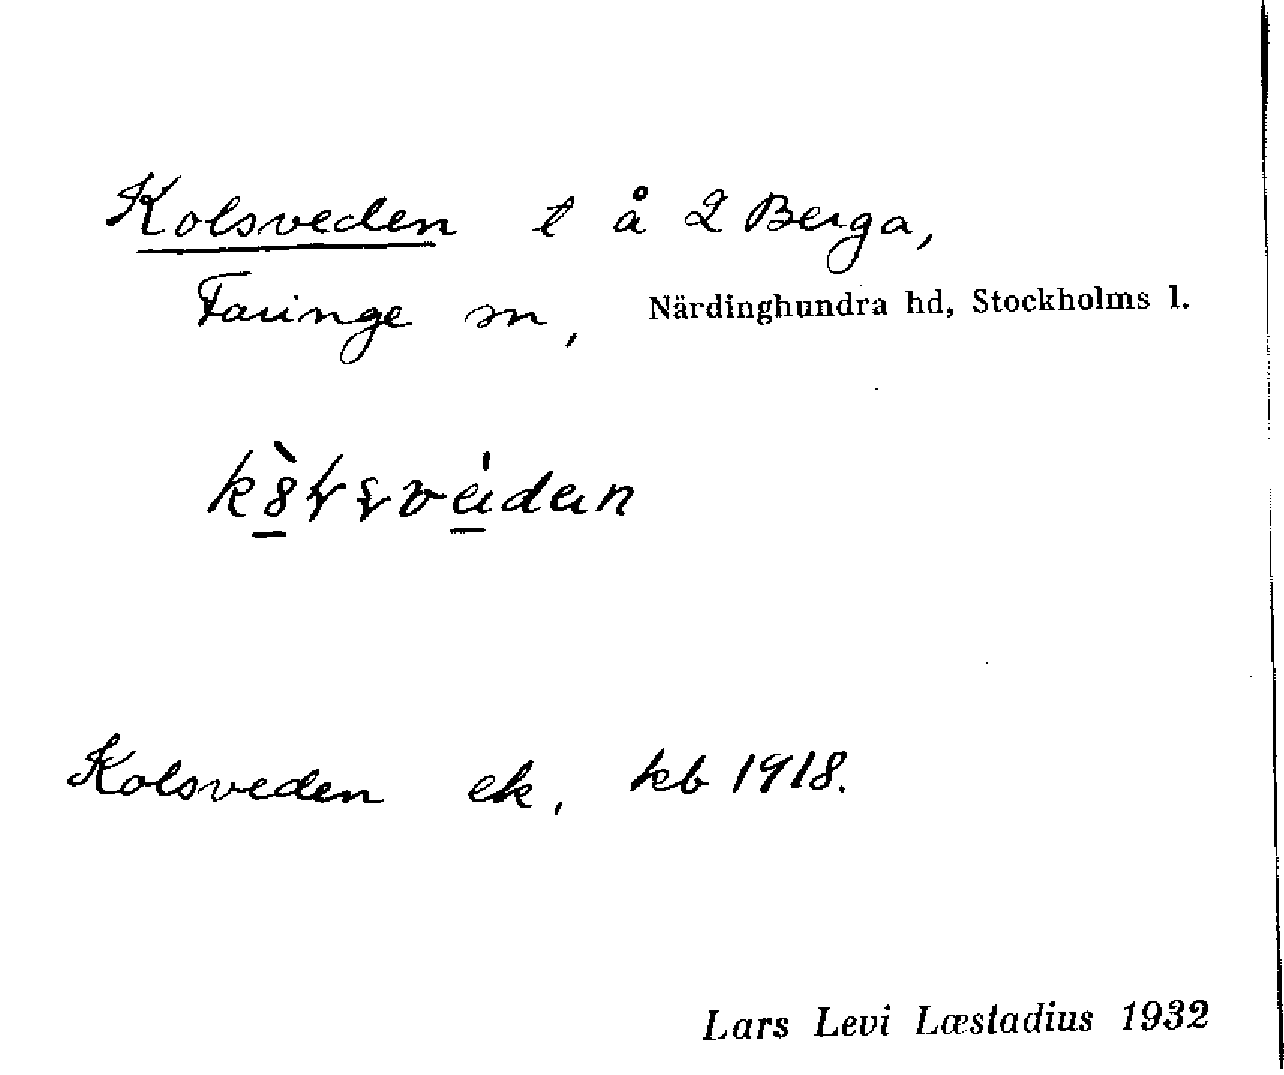 Kolsveden t å 2 Berga,
Faringe sn, Närdinghundra hd, Stockholms l.
Kolsveden ek, kb 1918.
Lars Levi Læstadius 1932